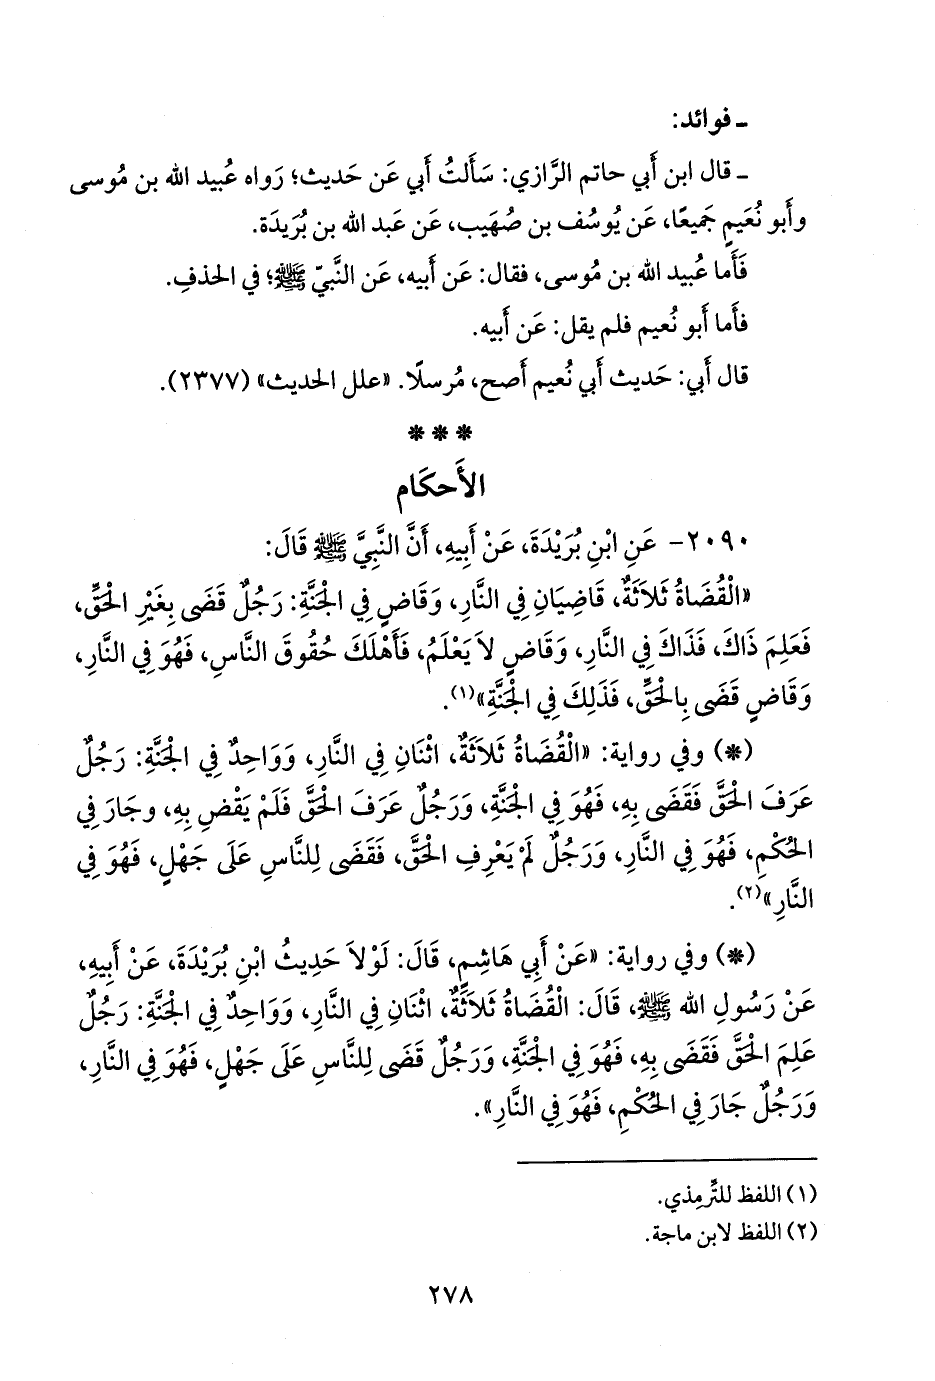 ـ فوائد:
ـ قال ابن أَبي حاتم الرَّازي: سَأَلتُ أَبي عَن حَديث؛ رَواه عُبيد الله بن مُوسى
وأَبو نُعَيمٍ جَميعًا، عَن يُوسُف بن صُهَيب، عَن عَبد الله بن بُرَيدَة.
فَأَما عُبيد الله بن مُوسى، فقال: عَن أَبيه، عَن النَّبيّ ﷺ؛ في الحذفِ.
فأَما أَبو نُعيم فلم يقل: عَن أَبيه.
قال أَبي: حَديث أَبي نُعيم أَصح، مُرسلًا. «علل الحديث» (٢٣٧٧).
* * *
الأَحكَام
٢٠٩٠- عَنِ ابْنِ بُرَيْدَةَ، عَنْ أَبِيهِ، أَنَّ النَّبِيَّ ﷺ قَالَ:
«الْقُضَاةُ ثَلاَثَةٌ، قَاضِيَانِ فِي النَّارِ، وَقَاضٍ فِي الْجَنَّةِ: رَجُلٌ قَضَى بِغَيْرِ الْحَقِّ،
فَعَلِمَ ذَاكَ، فَذَاكَ فِي النَّارِ، وَقَاضٍ لاَ يَعْلَمُ، فَأَهْلَكَ حُقُوقَ النَّاسِ، فَهُوَ فِي النَّارِ،
وَقَاضٍ قَضَى بِالْحَقِّ، فَذَلِكَ فِي الْجَنَّةِ»(١).
(*) وفي رواية: «الْقُضَاةُ ثَلاَثَةٌ، اثْنَانِ فِي النَّارِ، وَوَاحِدٌ فِي الْجَنَّةِ: رَجُلٌ
عَرَفَ الْحَقَّ فَقَضَى بِهِ، فَهُوَ فِي الْجَنَّةِ، وَرَجُلٌ عَرَفَ الْحَقَّ فَلَمْ يَقْضِ بِهِ، وجَارَ فِي
الْحُكْمِ، فَهُوَ فِي النَّارِ، وَرَجُلٌ لَمْ يَعْرِفِ الْحَقَّ، فَقَضَى لِلنَّاسِ عَلَى جَهْلٍ، فَهُوَ فِي
النَّارِ»(٢).
(*) وفي رواية: «عَنْ أَبِي هَاشِمٍ، قَالَ: لَوْلاَ حَدِيثُ ابْنِ بُرَيْدَةَ، عَنْ أَبِيهِ،
عَنْ رَسُولِ الله ﷺ، قَالَ: الْقُضَاةُ ثَلاَثَةٌ، اثْنَانِ فِي النَّارِ، وَوَاحِدٌ فِي الْجَنَّةِ: رَجُلٌ
عَلِمَ الْحَقَّ فَقَضَى بِهِ، فَهُوَ فِي الْجَنَّةِ، وَرَجُلٌ قَضَى لِلنَّاسِ عَلَى جَهْلٍ، فَهُوَ فِي النَّارِ،
وَرَجُلٌ جَارَ فِي الْحُكْمِ، فَهُوَ فِي النَّارِ».
(١) اللفظ للتِّرمِذي.
(٢) اللفظ لابن ماجة.
٢٧٨